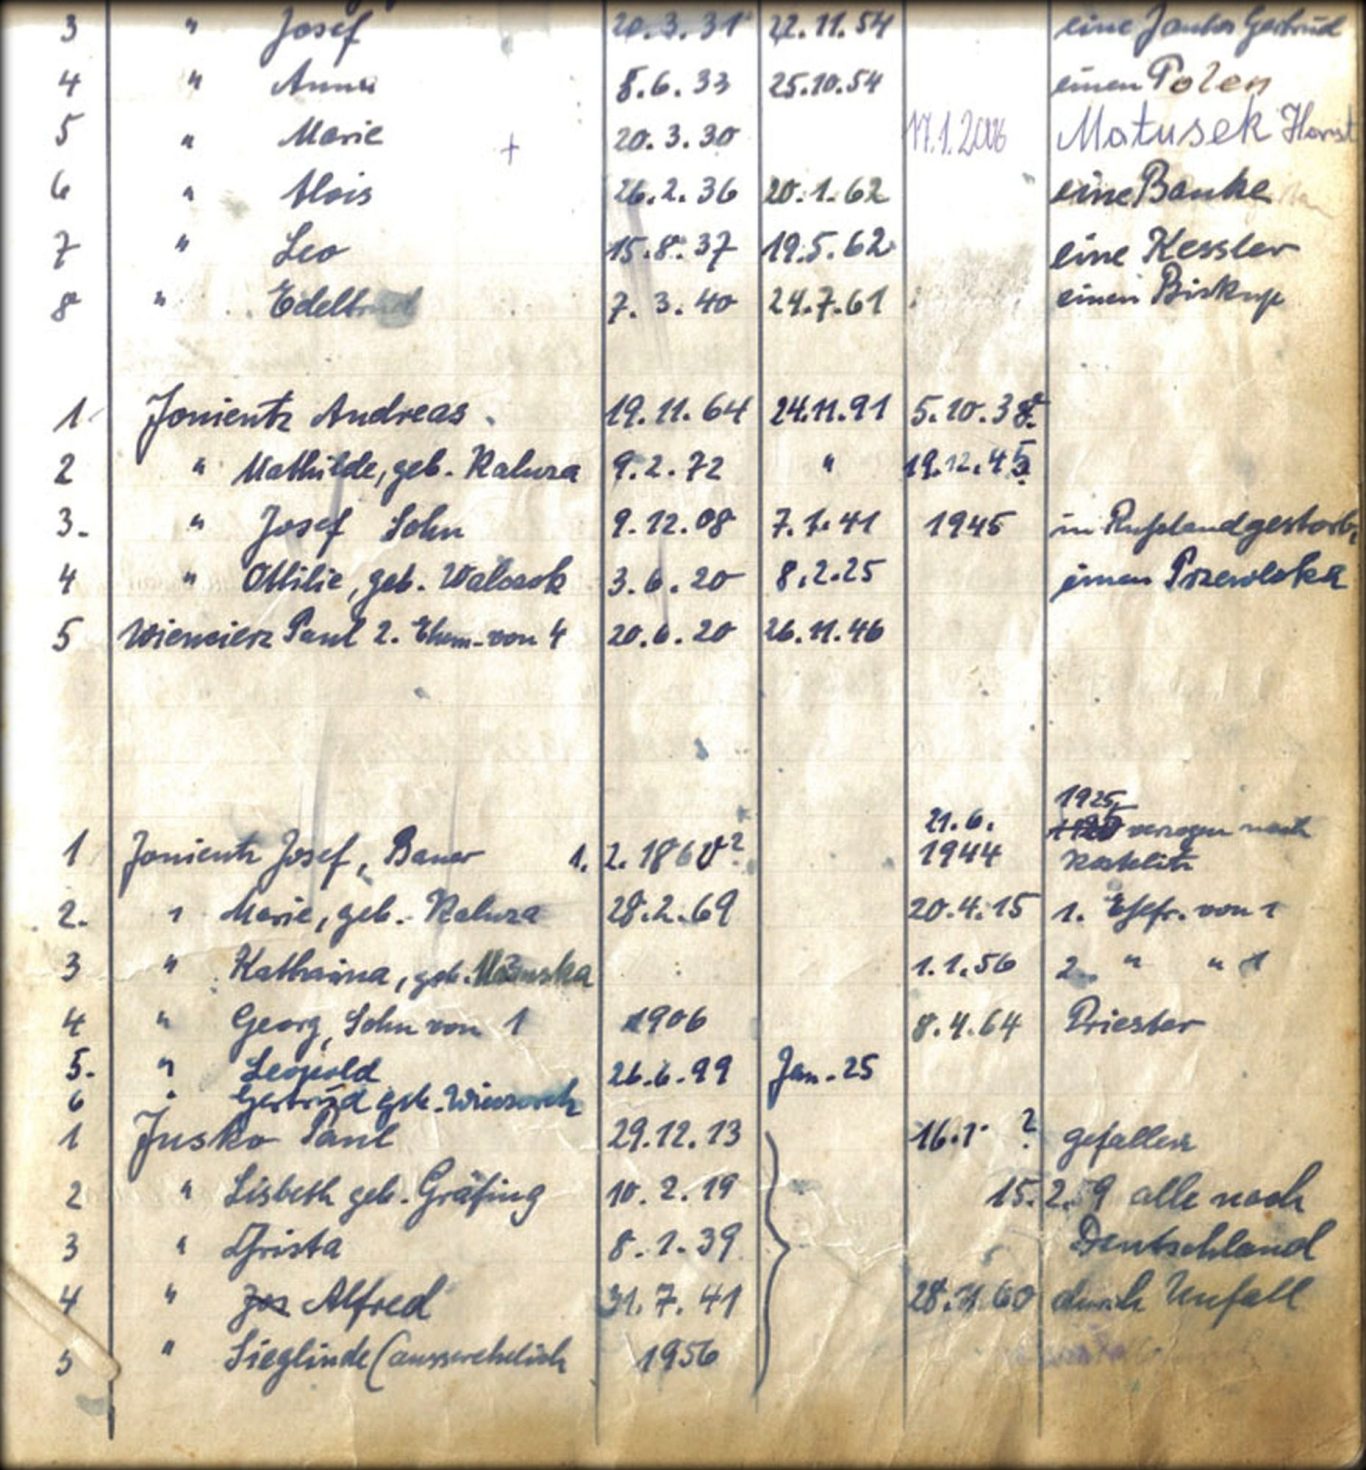 3 " Josef 20.3.31 22.11.54 eine Gertrud
4 " Anna 8.6.33 25.10.54 einen Polen
5 " Marie + 20.3.30 17.1.2006 Matusek Horst
6 " Alois 26.2.36 20.1.62 eine Banke
7 " Leo 15.8.37 19.5.62 eine Kessler
8 " Edeltrud 7.3.40 24.7.61 einen Biskup
1 Jonientz Andreas 19.11.64 24.11.91 5.10.38.
2 " Mathilde, geb. Kaluza 9.2.72 " 19.12.45
3. " Josef Sohn 9.12.08 7.1.41 1945 in Rußland gestorb.
4 " Ottilie, geb. 3.6.20 8.2.25 einen Przewloka
5 Wiencierz Paul 2. Ehem. von 4 20.6.20 26.11.46
1925
21.6. verzogen nach
1 Jonientz Josef, Bauer 1.2.1860? 1944 Kostelitz
2. " Marie, geb. Kaluza 28.2.69 20.4.15 1. Ehefr. von 1
3 " Katharina, geb. 1.1.56 2. " " 1
4 " Georg, Sohn von 1 1906 8.4.64 Priester
5. " Leopold 26.6.99 Jan. 25
6 " Gertrud geb.
1 Jusko Paul 29.12.13 16.1. ? gefallen
2 " Lisbeth geb. Gräfing 10.2.19 15.2.59 alle nach
3 " Christa 8.1.39 Deutschland
4 " Jos Alfred 31.7.41 28.11.60 durch Unfall
5 " Sieglinde (ausserehelich 1956